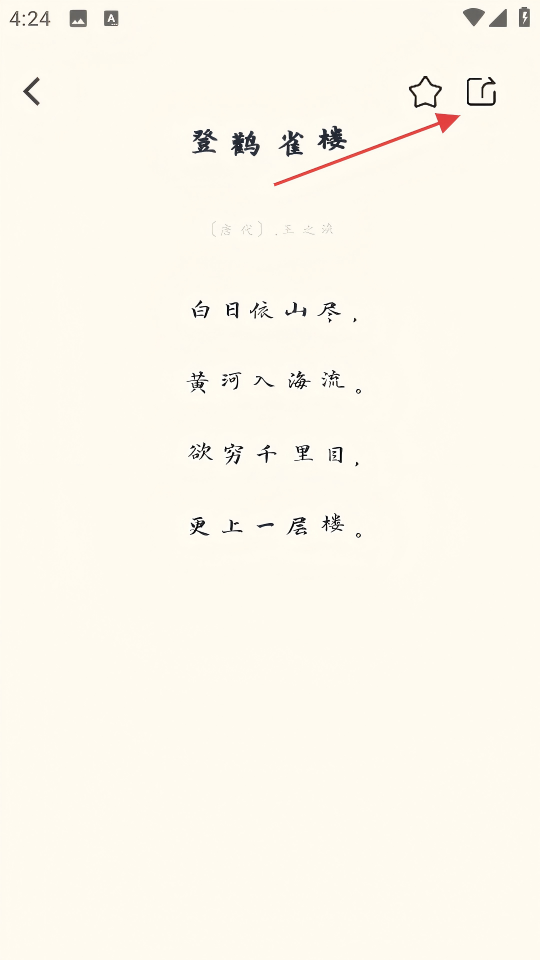 4:24
A
登鹳雀楼
〔唐代〕.王之涣
白日依山尽，
黄河入海流。
欲穷千里目，
更上一层楼。